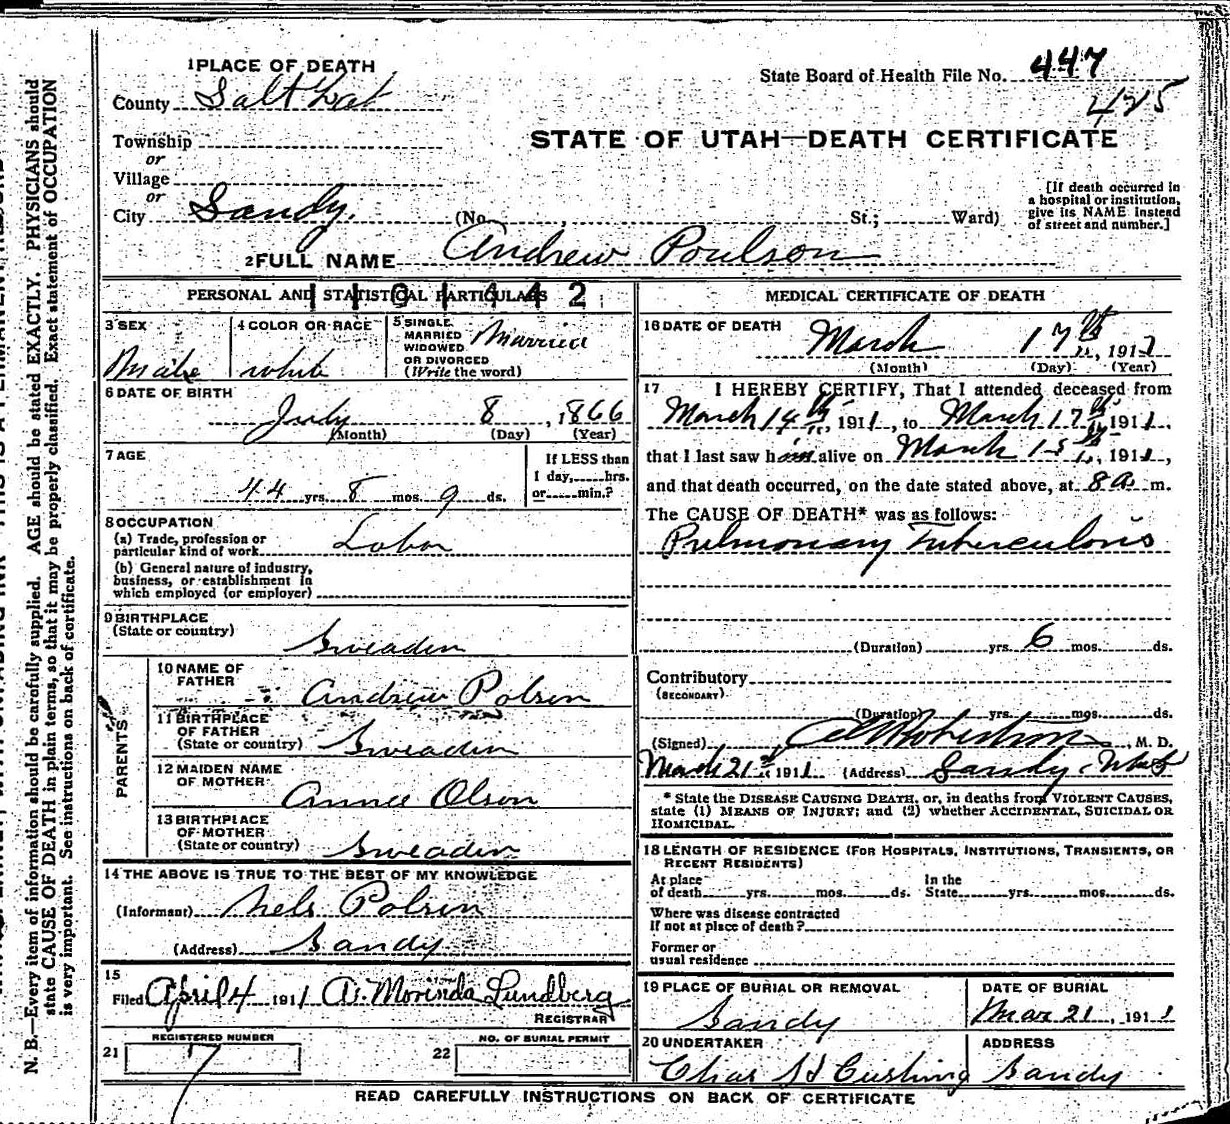 1 PLACE OF DEATH
State Board of Health File No. 447
County Salt Lak
425
STATE OF UTAH—DEATH CERTIFICATE
Township
or
Village
or
City Sandy. (No. , St.; Ward)
[If death occurred in
a hospital or institution,
give its NAME instead
of street and number.]
2 FULL NAME Andrew Poulson
PERSONAL AND STATISTICAL PARTICULARS
3 SEX
Male
4 COLOR OR RACE
white
5 SINGLE
MARRIED
WIDOWED
OR DIVORCED
(Write the word)
Married
6 DATE OF BIRTH
July 8, 1866
(Month) (Day) (Year)
7 AGE
44 yrs. 8 mos. 9 ds.
If LESS than
1 day,......hrs.
or......min.?
8 OCCUPATION
(a) Trade, profession or
particular kind of work Labor
(b) General nature of industry,
business, or establishment in
which employed (or employer)
9 BIRTHPLACE
(State or country)
Sweaden
PARENTS
10 NAME OF
FATHER
Andrew Polson
11 BIRTHPLACE
OF FATHER
(State or country) Sweaden
12 MAIDEN NAME
OF MOTHER
Annee Olson
13 BIRTHPLACE
OF MOTHER
(State or country) Sweaden
14 THE ABOVE IS TRUE TO THE BEST OF MY KNOWLEDGE
(Informant) Nels Polson
(Address) Sandy
15
Filed April 4 1911 A. Morinda Lundberg
REGISTRAR
REGISTERED NUMBER
21 7
NO. OF BURIAL PERMIT
22
MEDICAL CERTIFICATE OF DEATH
16 DATE OF DEATH
March 17th, 1911
(Month) (Day) (Year)
17 I HEREBY CERTIFY, That I attended deceased from
March 14th, 1911, to March 17th 1911,
that I last saw him alive on March 15th, 1911,
and that death occurred, on the date stated above, at 8 a. m.
The CAUSE OF DEATH* was as follows:
Pulmonary Tuberculosis
(Duration) yrs. 6 mos. ds.
Contributory
(SECONDARY)
(Duration) yrs. mos. ds.
(Signed) Robertson, M. D.
March 21st, 1911 (Address) Sandy Utah
* State the DISEASE CAUSING DEATH, or, in deaths from VIOLENT CAUSES,
state (1) MEANS OF INJURY; and (2) whether ACCIDENTAL, SUICIDAL OR
HOMICIDAL.
18 LENGTH OF RESIDENCE (FOR HOSPITALS, INSTITUTIONS, TRANSIENTS, OR
RECENT RESIDENTS)
At place In the
of death yrs. mos. ds. State yrs. mos. ds.
Where was disease contracted
If not at place of death?
Former or
usual residence
19 PLACE OF BURIAL OR REMOVAL
Sandy
DATE OF BURIAL
Mar 21, 1911
20 UNDERTAKER
Chas H Cushing
ADDRESS
Sandy
READ CAREFULLY INSTRUCTIONS ON BACK OF CERTIFICATE
N. B.—Every item of information should be carefully supplied. AGE should be stated EXACTLY. PHYSICIANS should
state CAUSE OF DEATH in plain terms, so that it may be properly classified. Exact statement of OCCUPATION
is very important. See instructions on back of certificate.